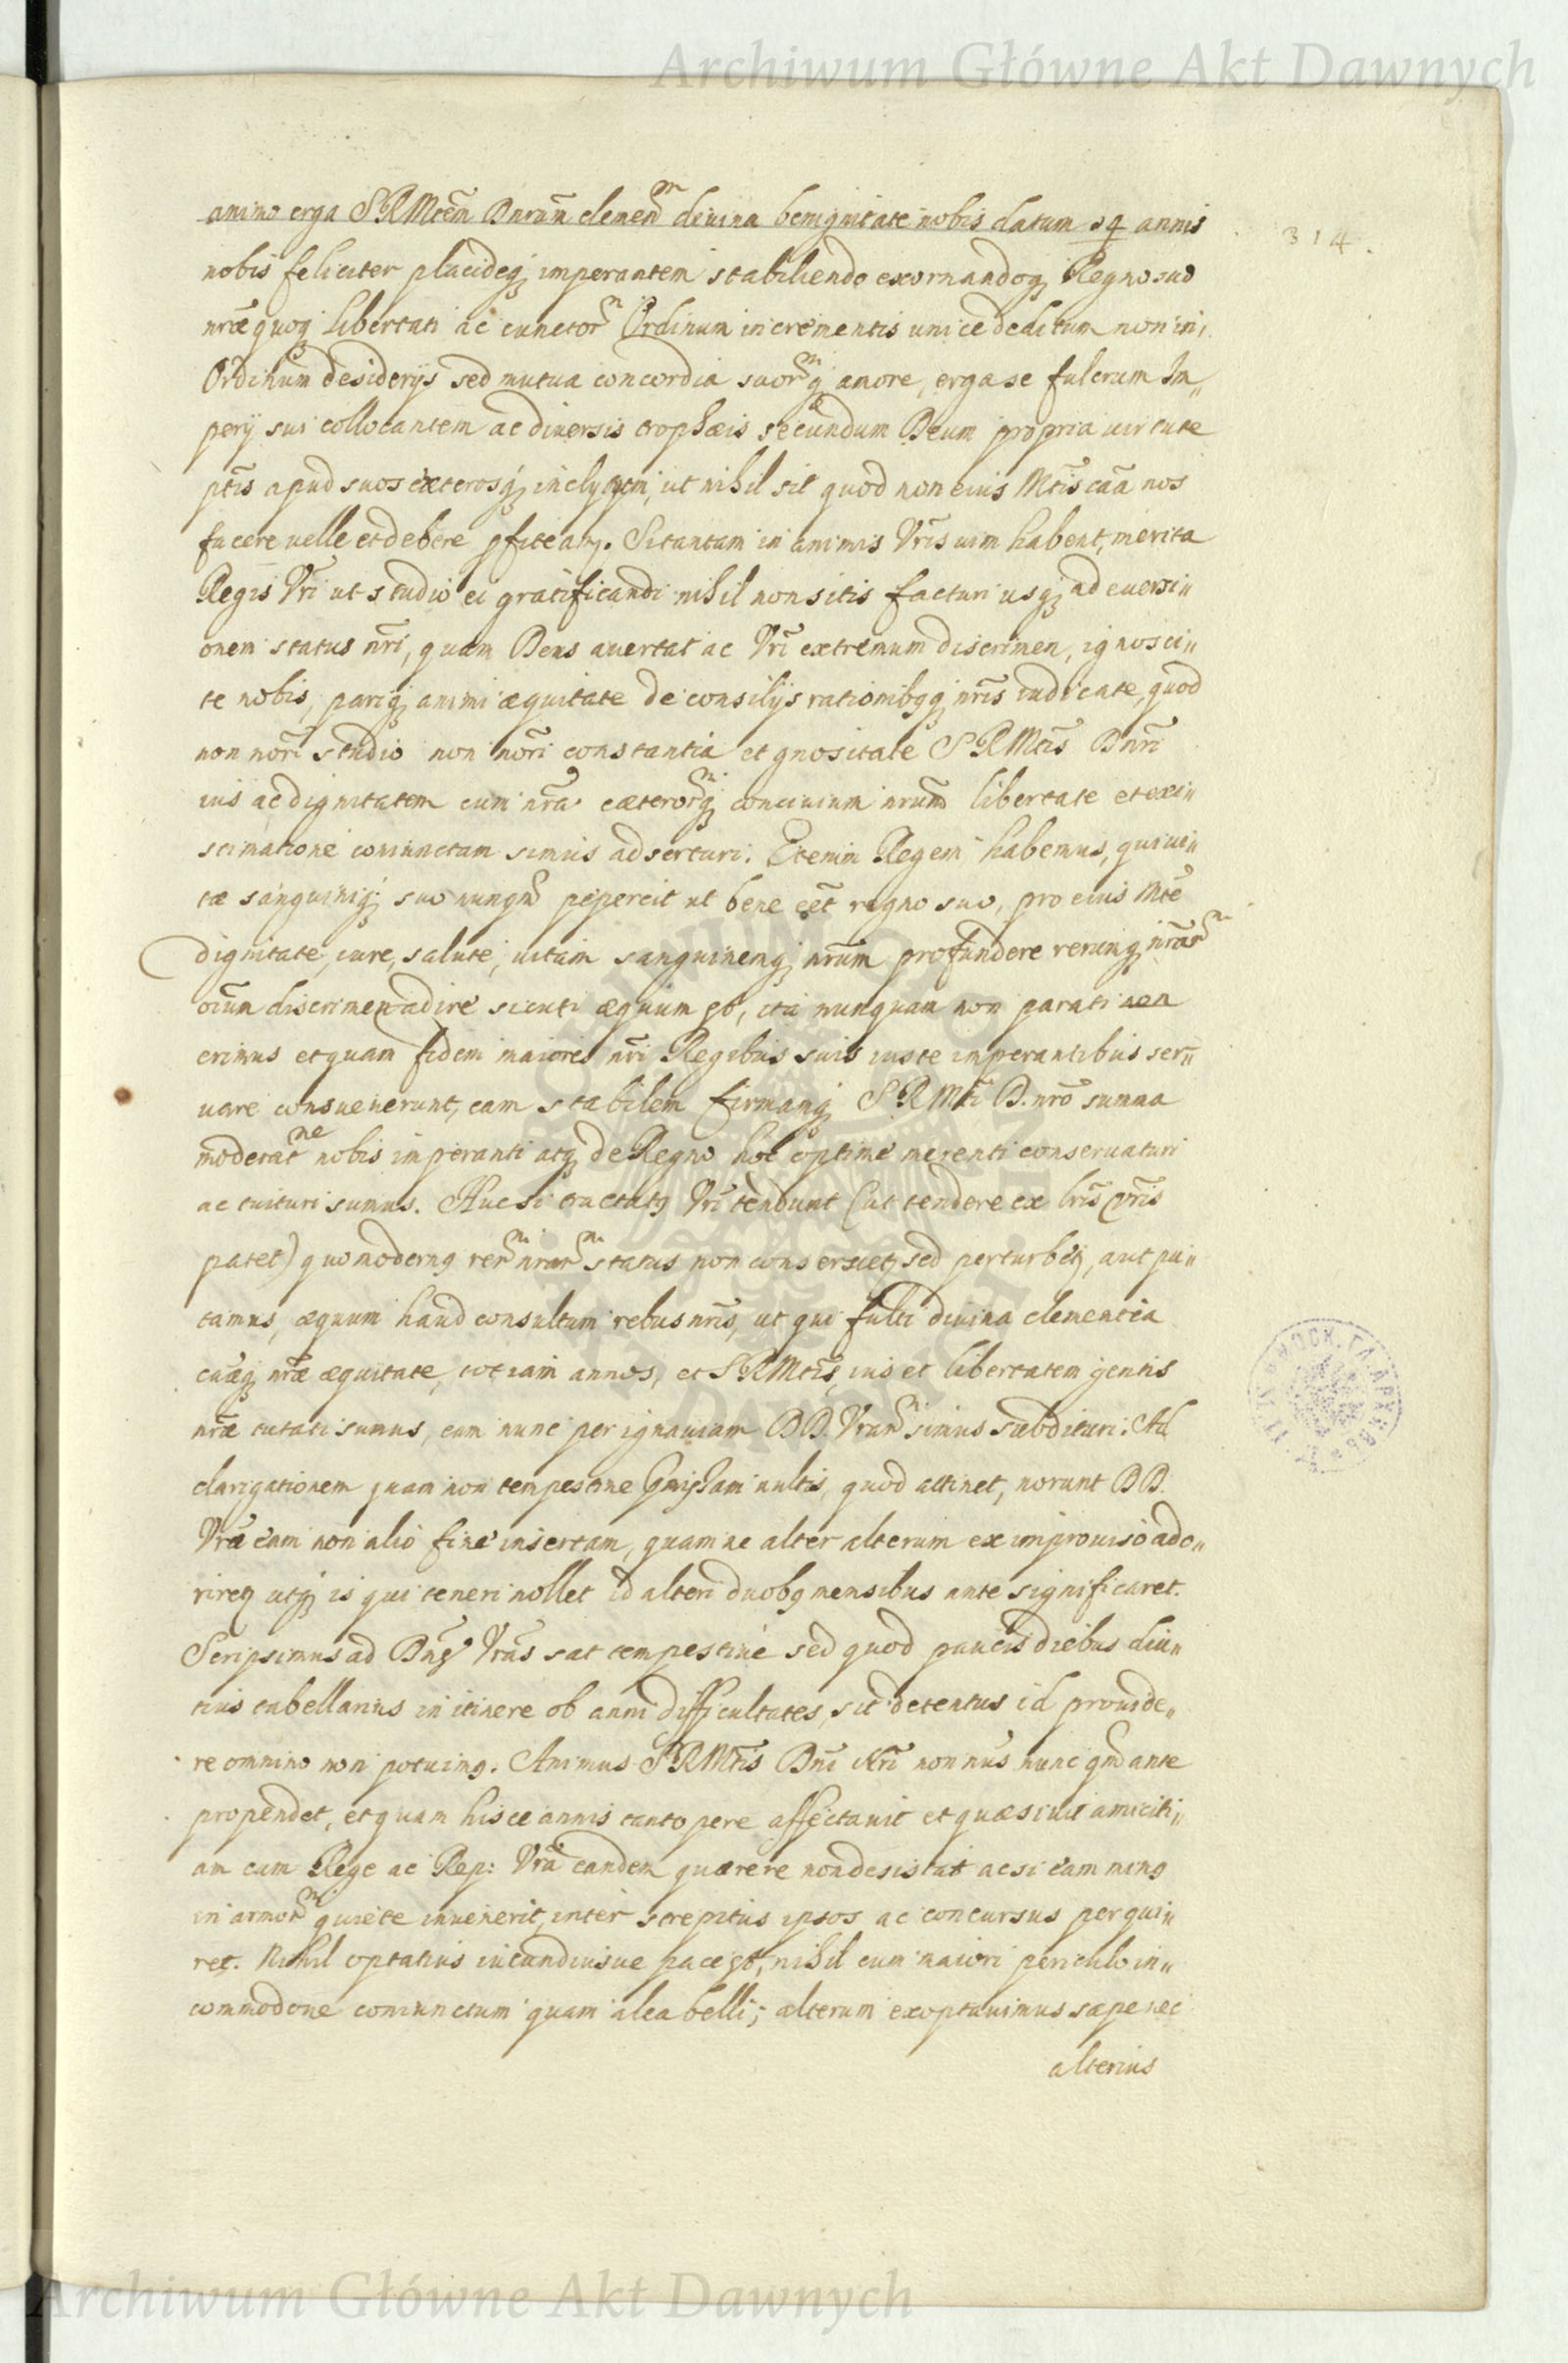 Archiwum Główne Akt Dawnych
314.
animo erga SRMtem Dnrum clemen^m divina benignitate nobis datum 14 annis
nobis feliciter placideq; imperantem stabiliendo exornandoq; Regno suo
nr̃æ quoq; libertati ac cunctor^m Ordinum incrementis unice deditum non in
Ordinum desiderijs sed mutua concordia suor^m q; amore, erga se fulcrum Im„
perij sui collocantem ac diversis trophæis secundum Deum propria uirtute
ptis apud suos exterosq; inclytum, ut nihil sit quod non eius Mtis cãa nos
facere uelle et debere pfiteamr. Si tantam in animis Vr̃is uim habent, merita
Regis Vr̃i ut studio ei gratificandi nihil non sitis facturi usq; ad euersi„
onem status nr̃i, quam Deus auertat ac Vr̃i extremum discrimen, ignosci„
te nobis, pariq; animi æquitate de consilijs rationibqq; nr̃is iudicate, quod
non nõri studio non nõri constantia et gnositate SRMtis Dnr̃i
ius ac dignitatem cum nr̃a cæteror^mq; conciuium nrum̃ libertate et exi„
stimatione coniunctam simus adserturi. Etenim Regem habemus, qui ui„
tæ sanguiniq; suo nunqm̃ pepercit ut bene eẽt regno suo, pro eius Mte
dignitate, iure, salute, uitam sanguinemq; nrũm profundere rerumq; nrar^m
oĩum discrimen adire sicuti æquum est, ita nunquam non parati non
erimus et quam fidem maiores nr̃i Regibus suis iuste imperantibus ser„
uare consueuerunt, eam stabilem firmamq; SRMti D. nr̃o summa
moderat^ne nobis imperanti atq; de Regno hoc optime merenti conseruaturi
ac tuituri sumus. Huc si tractatq Vr̃i tendunt (ut tendere ex lr̃is Vr̃is
patet) quo modernq rer^m nrar^m status non conseruetr, sed perturbetr, aut pu„
tamus, æquum haud consultum rebus nr̃is, ut qui fulti diuina clementia
cãæq; nr̃æ æquitate, tot iam annos, et SRMtis, ius et libertatem gentis
nr̃æ tutati sumus, eam nunc per ignauiam DD. Vrar^m simus subdituri. Ad
clarigationem quam non tempestiue gmissam uultis, quod attinet, norunt DD.
Vr̃æ eam non alio fine insertam, quam ne alter alterum ex improuiso ado„
riretr utq; is qui teneri nollet id alteri duobq mensibus ante significaret.
Scripsimus ad Dnes Vr̃as sat tempestiue sed quod paucis diebus diu„
tius tabellarius in itinere ob anni difficultates, sit detentus id prouide„
re omnino non potuimq. Animus SRMtis Dnĩ Nr̃i non nus̃ nunc qm̃ ante
propendet, et quam hisce annis tanto pere affectauit et quæsiuit amiciti„
am cum Rege ac Rep: Vr̃a eandem quærere non desistat ac si eam minq
in armor^m quiete inuenerit, inter strepitus ipsos ac concursus perqui„
ret. Nihil optatius iucundiusue pace est, nihil cum maiori periculo in„
commodoue coniunctum quam alea belli; alterum exoptauimus sæpe nec
alterius
Archiwum Główne Akt Dawnych